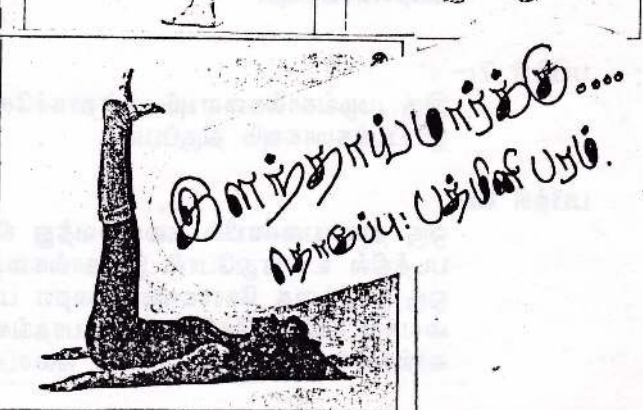 இளந்தாய்மார்க்கு....
தொகுப்பு: பத்மினி பரம்.